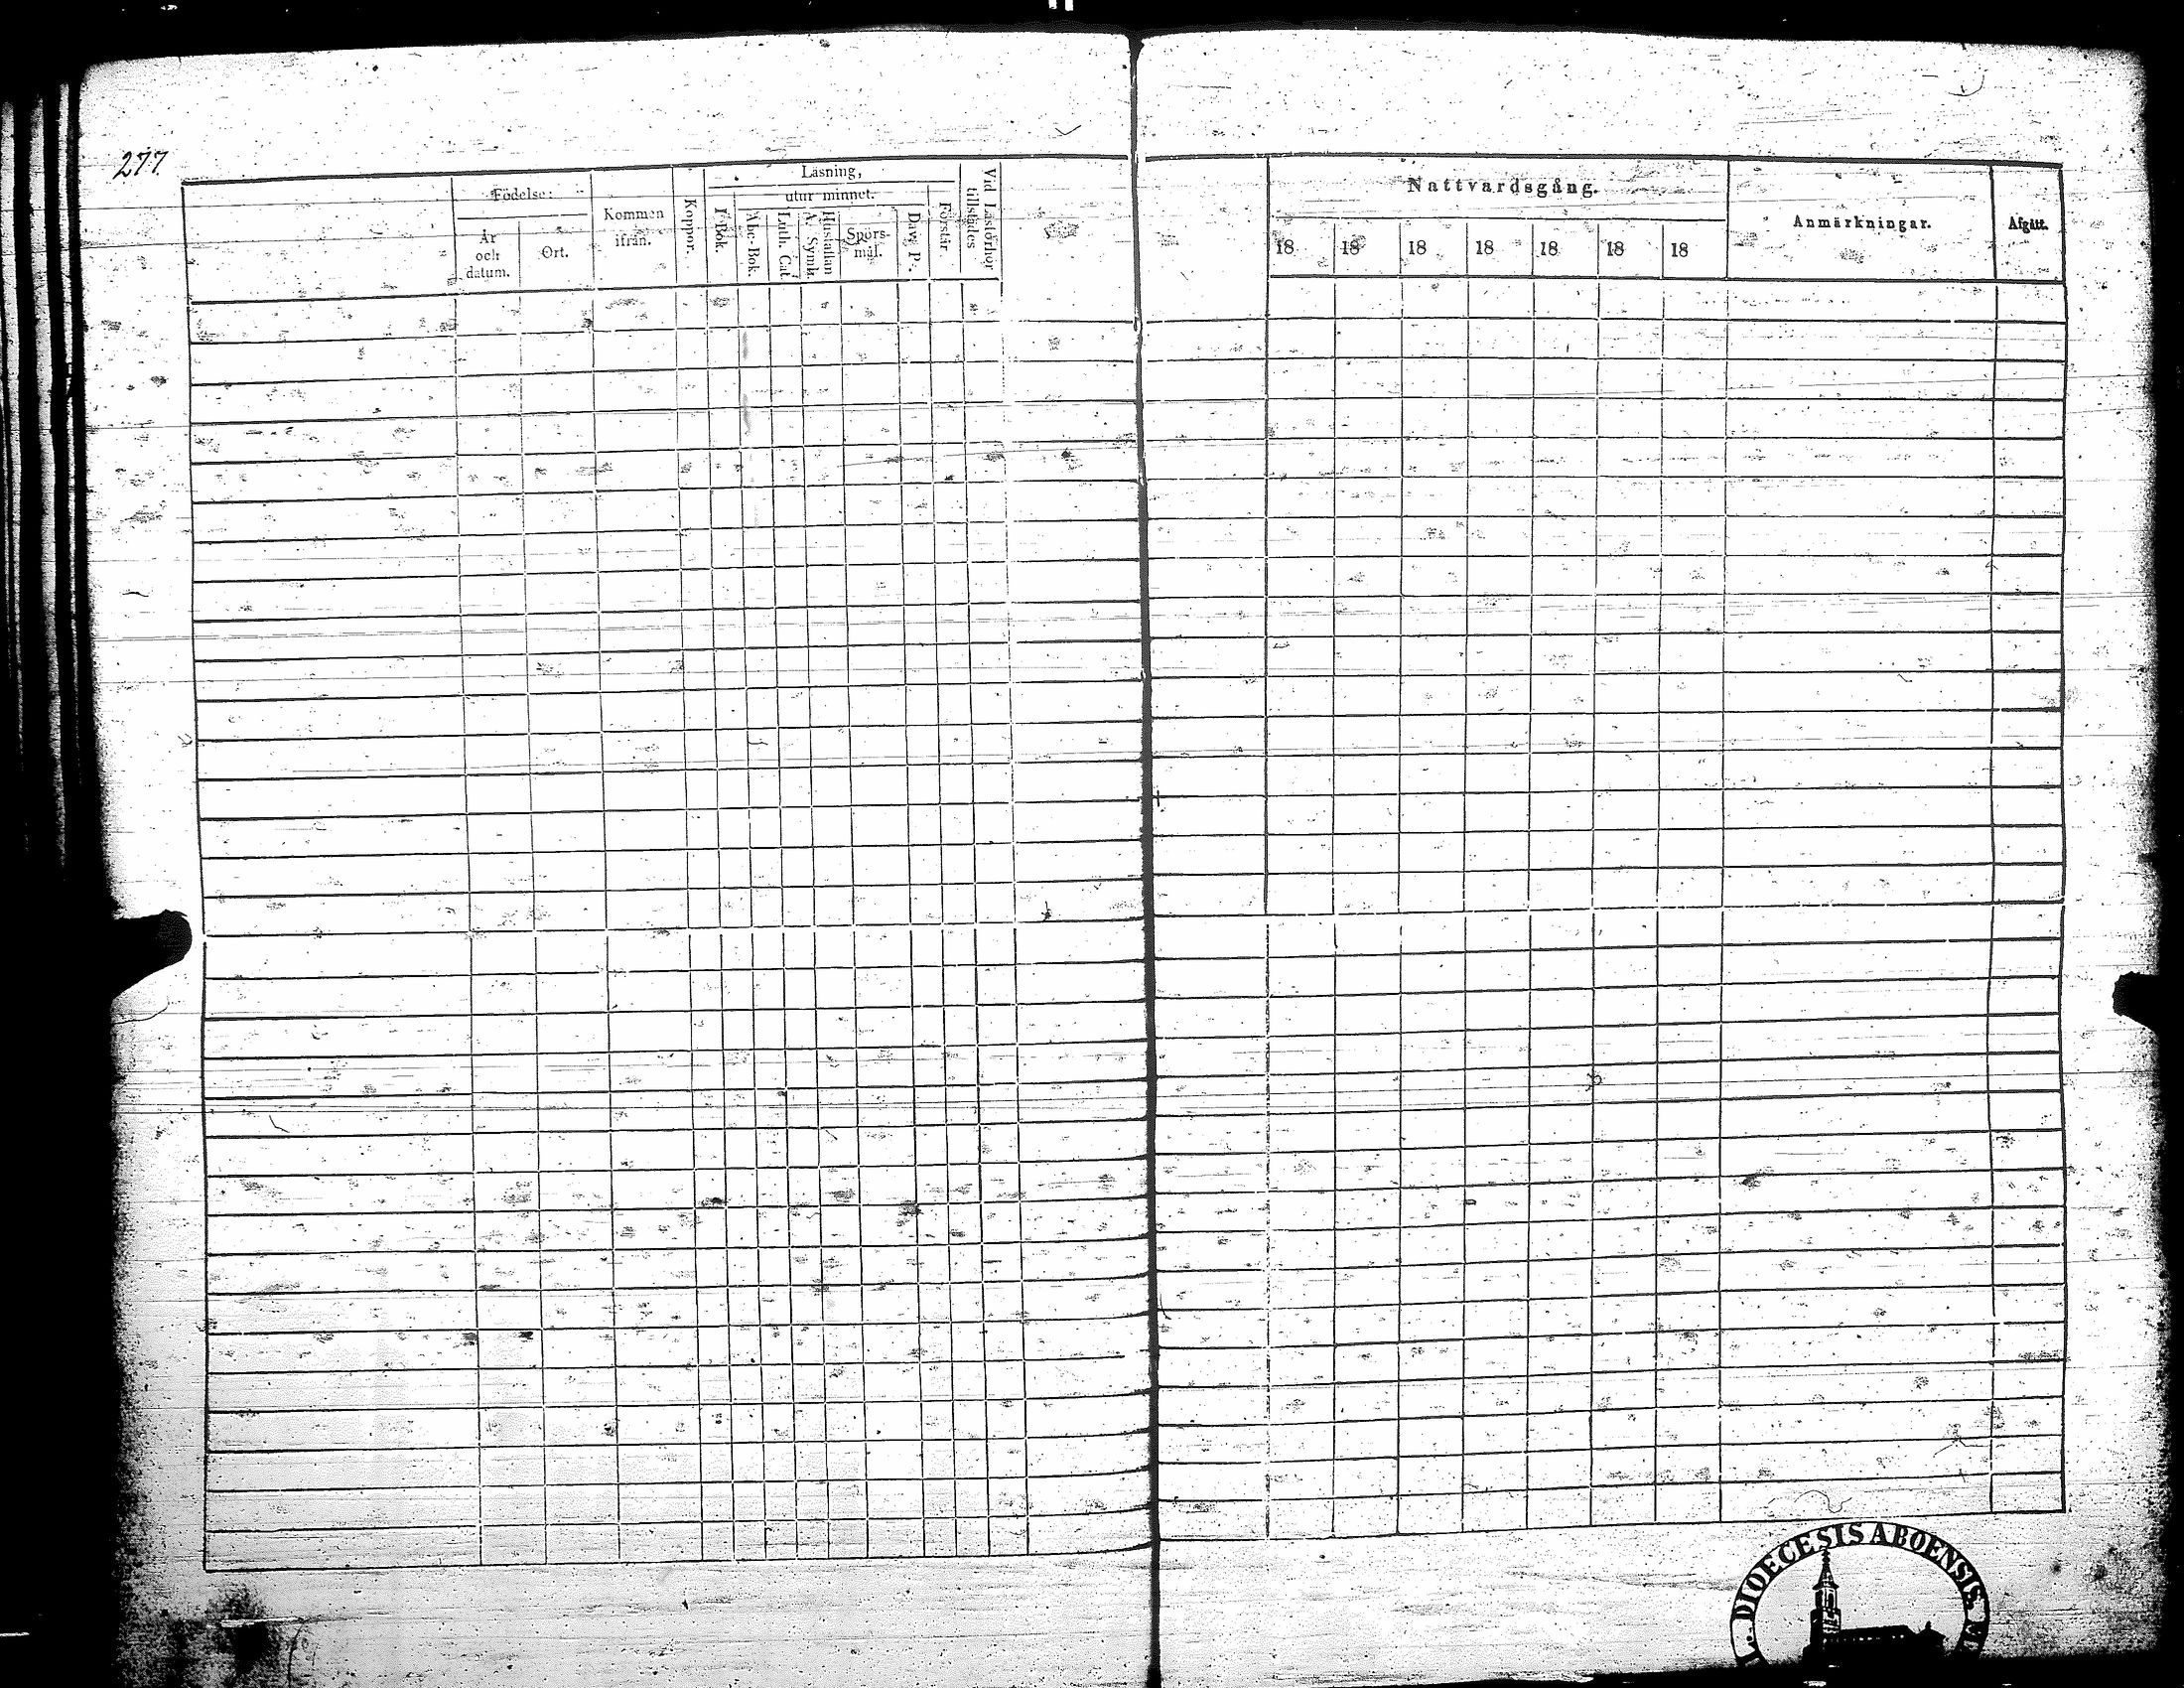 277
Födelse:
År
och
datum.
Ort.
Kommen
ifrån.
Koppor.
Läsning,
I Bok.
utur minnet.
Abc-Bok.
Luth. Cat.
Hustaflan
A. Symb.
Spörs-
mål.
Dav. P.
Förstår.
Vid Läsförhör
tillstädes
Nattvardsgång.
18 18 18 18 18 18 18
Anmärkningar.
Afgått.
DIOECESIS ABOENSIS